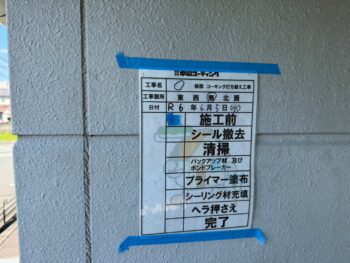 コーキング
工事名 階部 コーキング打ち替え工事
工事箇所 東 西 南 北 面
日付 R 6 年 6 月 5 日
施工前
シール撤去
清掃
バックアップ材 及び
ボンドブレーカー
プライマー塗布
シーリング材充填
ヘラ押さえ
完了